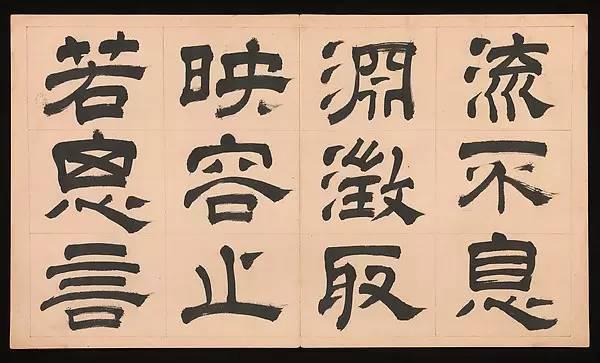 流不息
淵澂取
映容止
若恖言